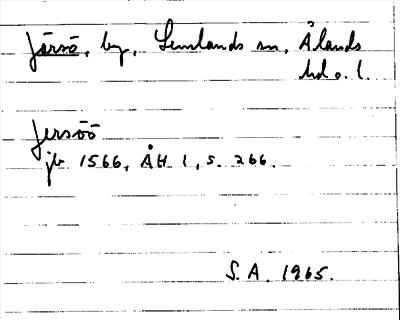 Järsö, by, Lemlands sn, Ålands
hd o. l.
Jersöö
jb 1566, ÅH 1, s. 266.
S.A. 1965.